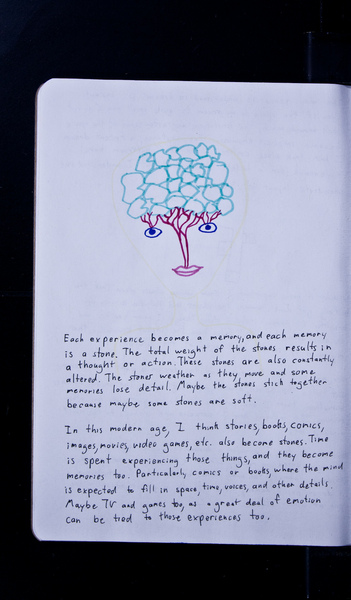 Each experience becomes a memory, and each memory
is a stone. The total weight of the stones results in
a thought or action. These stones are also constantly
altered. The stones weather as they move and some
memories lose detail. Maybe the stones stick together
because maybe some stones are soft.
In this modern age, I think stories, books, comics,
images, movies, video games, etc. also become stones. Time
is spent experiencing those things, and they become
memories too. Particularly, comics or books, where the mind
is expected to fill in space, time, voices, and other details.
Maybe TV and games too, as a great deal of emotion
can be tied to those experiences too.